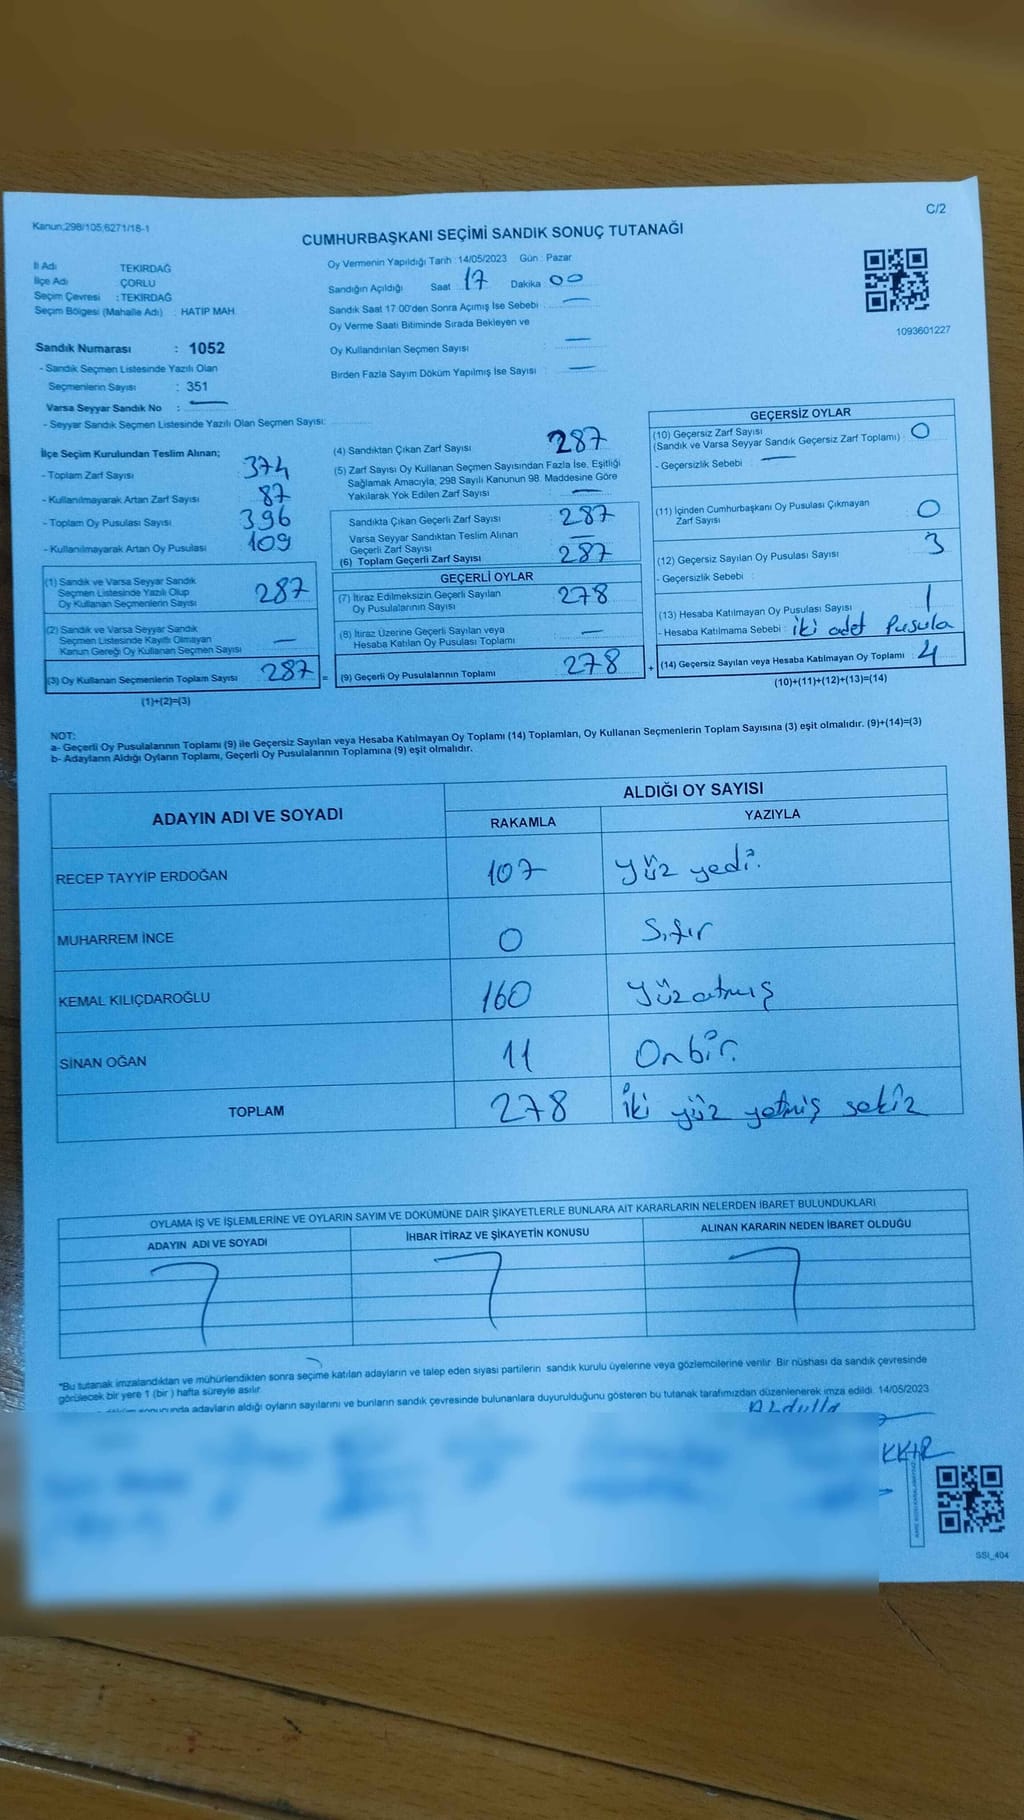 Kanun;298/105,6271/18-1
C/2
CUMHURBAŞKANI SEÇİMİ SANDIK SONUÇ TUTANAĞI
İl Adı TEKİRDAĞ
İlçe Adı ÇORLU
Seçim Çevresi : TEKİRDAĞ
Seçim Bölgesi (Mahalle Adı) : HATİP MAH.
Oy Vermenin Yapıldığı Tarih : 14/05/2023 Gün : Pazar
Sandığın Açıldığı Saat 17 Dakika 00
Sandık Saat 17:00'den Sonra Açımış İse Sebebi : —
Oy Verme Saati Bitiminde Sırada Bekleyen ve
Oy Kullandırılan Seçmen Sayısı : —
Birden Fazla Sayım Döküm Yapılmış İse Sayısı : —
1093601227
Sandık Numarası : 1052
- Sandık Seçmen Listesinde Yazılı Olan
Seçmenlerin Sayısı : 351
Varsa Seyyar Sandık No : —
- Seyyar Sandık Seçmen Listesinde Yazılı Olan Seçmen Sayısı:
İlçe Seçim Kurulundan Teslim Alınan;
- Toplam Zarf Sayısı 374
- Kullanılmayarak Artan Zarf Sayısı 87
- Toplam Oy Pusulası Sayısı 396
- Kullanılmayarak Artan Oy Pusulası 109
(1) Sandık ve Varsa Seyyar Sandık
Seçmen Listesinde Yazılı Olup
Oy Kullanan Seçmenlerin Sayısı 287
(2) Sandık ve Varsa Seyyar Sandık
Seçmen Listesinde Kayıtlı Olmayan
Kanun Gereği Oy Kullanan Seçmen Sayısı —
(3) Oy Kullanan Seçmenlerin Toplam Sayısı : 287 =
(1)+(2)=(3)
(4) Sandıktan Çıkan Zarf Sayısı 287
(5) Zarf Sayısı Oy Kullanan Seçmen Sayısından Fazla İse, Eşitliği
Sağlamak Amacıyla; 298 Sayılı Kanunun 98. Maddesine Göre
Yakılarak Yok Edilen Zarf Sayısı —
Sandıkta Çıkan Geçerli Zarf Sayısı : 287
Varsa Seyyar Sandıktan Teslim Alınan
Geçerli Zarf Sayısı —
(6) Toplam Geçerli Zarf Sayısı : 287
GEÇERLİ OYLAR
(7) İtiraz Edilmeksizin Geçerli Sayılan
Oy Pusulalarının Sayısı : 278
(8) İtiraz Üzerine Geçerli Sayılan veya
Hesaba Katılan Oy Pusulası Toplamı : —
(9) Geçerli Oy Pusulalarının Toplamı : 278 +
GEÇERSİZ OYLAR
(10) Geçersiz Zarf Sayısı
(Sandık ve Varsa Seyyar Sandık Geçersiz Zarf Toplamı) : 0
- Geçersizlik Sebebi : —
(11) İçinden Cumhurbaşkanı Oy Pusulası Çıkmayan
Zarf Sayısı 0
(12) Geçersiz Sayılan Oy Pusulası Sayısı 3
- Geçersizlik Sebebi :
(13) Hesaba Katılmayan Oy Pusulası Sayısı 1
- Hesaba Katılmama Sebebi : iki adet Pusula
(14) Geçersiz Sayılan veya Hesaba Katılmayan Oy Toplamı : 4
(10)+(11)+(12)+(13)=(14)
NOT:
a- Geçerli Oy Pusulalarının Toplamı (9) ile Geçersiz Sayılan veya Hesaba Katılmayan Oy Toplamı (14) Toplamları, Oy Kullanan Seçmenlerin Toplam Sayısına (3) eşit olmalıdır. (9)+(14)=(3)
b- Adayların Aldığı Oyların Toplamı, Geçerli Oy Pusulalarının Toplamına (9) eşit olmalıdır.
ADAYIN ADI VE SOYADI ALDIĞI OY SAYISI
RAKAMLA YAZIYLA
RECEP TAYYİP ERDOĞAN 107 Yüz yedi.
MUHARREM İNCE 0 Sıfır
KEMAL KILIÇDAROĞLU 160 Yüzatmış
SİNAN OĞAN 11 Onbir.
TOPLAM 278 İki yüz yetmiş sekiz
OYLAMA İŞ VE İŞLEMLERİNE VE OYLARIN SAYIM VE DÖKÜMÜNE DAİR ŞİKAYETLERLE BUNLARA AİT KARARLARIN NELERDEN İBARET BULUNDUKLARI
ADAYIN ADI VE SOYADI İHBAR İTİRAZ VE ŞİKAYETİN KONUSU ALINAN KARARIN NEDEN İBARET OLDUĞU
*Bu tutanak imzalandıktan ve mühürlendikten sonra seçime katılan adayların ve talep eden siyasi partilerin sandık kurulu üyelerine veya gözlemcilerine verilir. Bir nüshası da sandık çevresinde
görülecek bir yere 1 (bir ) hafta süreyle asılır.
sonucunda adayların aldığı oyların sayılarını ve bunların sandık çevresinde bulunanlara duyurulduğunu gösteren bu tutanak tarafımızdan düzenlenerek imza edildi. 14/05/2023
SSI_404